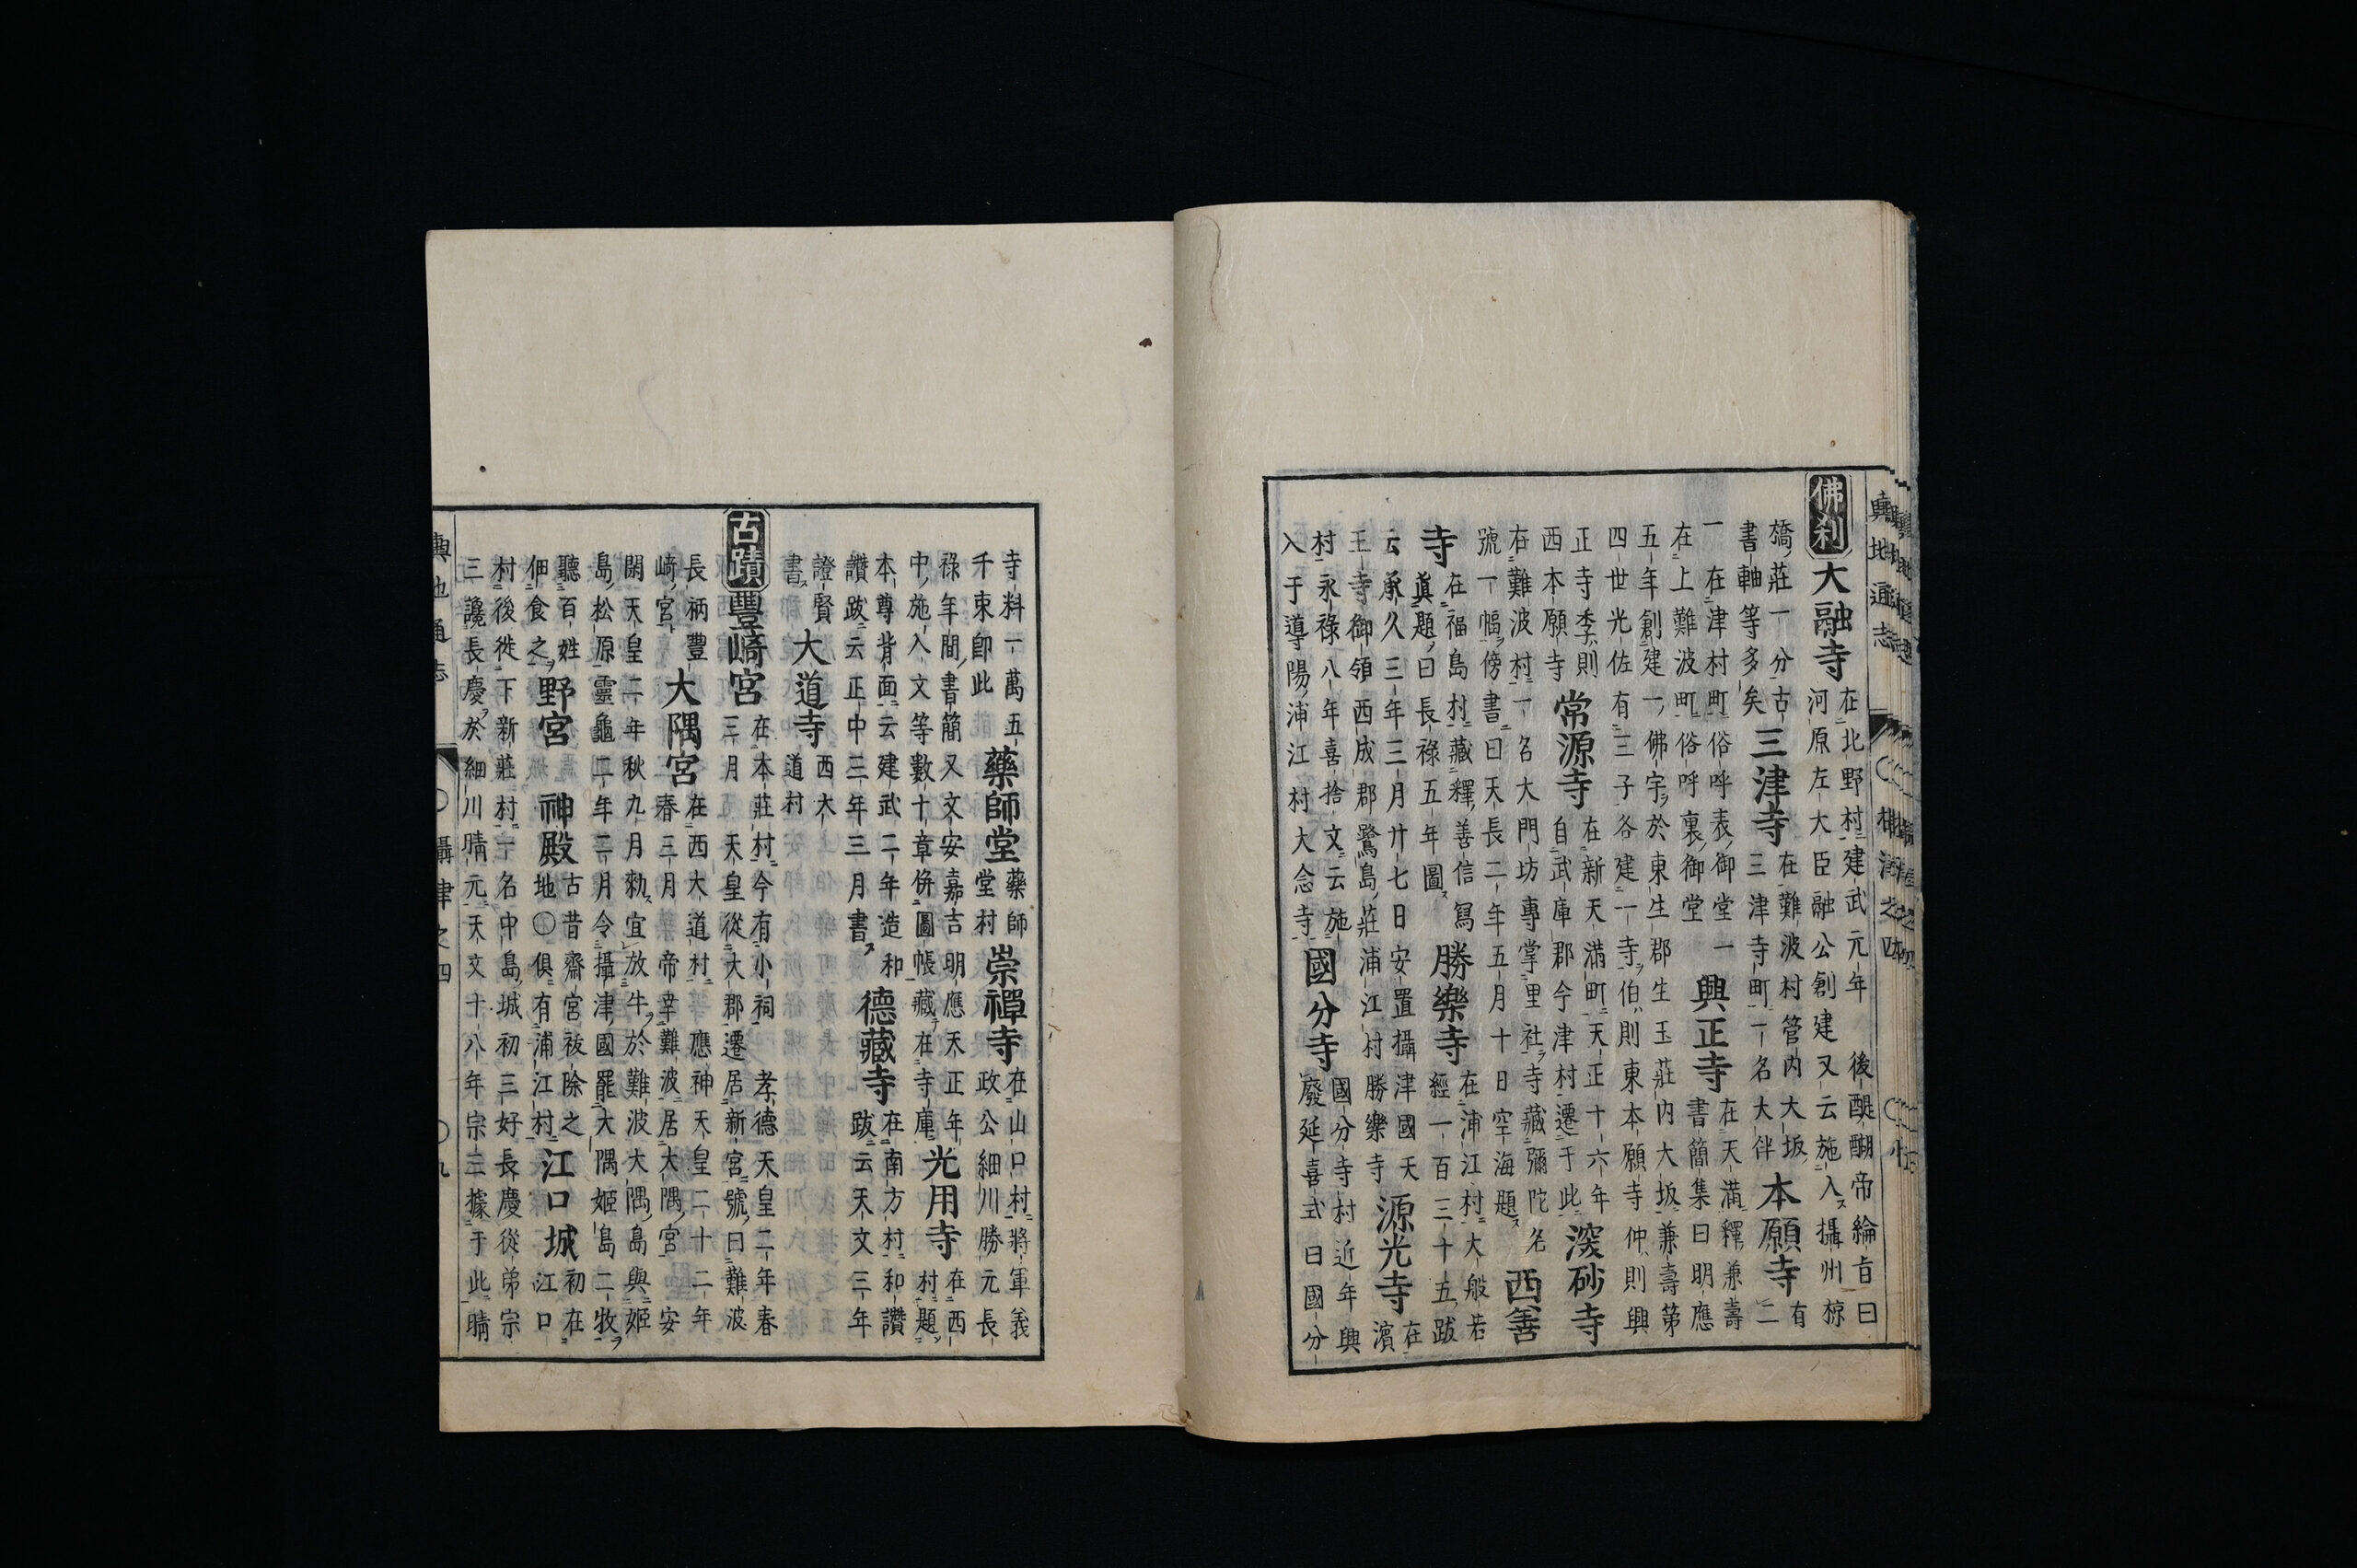 佛刹
大融寺
在北野村建武元年 後醍醐帝綸旨曰
河原左大臣融公創建又云施入攝州椋
橋莊一分古
書軸等多矣
三津寺
在難波村管内大坂
三津寺町一名大伴
本願寺
有
二
一在津村町俗呼表御堂一
在上難波町俗呼裏御堂
興正寺
在天滿釋兼壽
書簡集曰明應
五年創建一佛宇於東生郡生玉莊内大坂兼壽第
四世光佐有三子各建一寺伯則東本願寺仲則興
正寺季則
西本願寺
常源寺
在新天滿町天正十六年
自武庫郡今津村遷于此
滾砂寺
在難波村一名大門坊專掌里社寺藏彌陀名
號一幅傍書曰天長二年五月十日空海題
西善
寺
在福島村藏釋善信寫
眞題曰長祿五年圖
勝樂寺
在浦江村大般若
經一百三十五跋
云承久三年三月廿七日安置攝津國天
王寺御領西成郡鷺島莊浦江村勝樂寺
源光寺
在
濱
村永祿八年喜捨文云施
入于導陽浦江村大念寺
國分寺
國分寺村近年興
廢延喜式曰國分
寺料一萬五
千束卽此
藥師堂
藥師
堂村
崇禪寺
在山口村將軍義
政公細川勝元長
祿年間書簡又文安嘉吉明應天正年
中施入文等數十章併圖帳藏在寺庫
光用寺
在西
村題
本尊背面云建武二年造和
讚跋云正中三年三月書
德藏寺
在南方村和讚
跋云天文三年
證賢
書
大道寺
西大
道村
古蹟
豐﨑宮
在本莊村今有小祠 孝德天皇二年春
三月 天皇從大郡遷居新宮號曰難波
長柄豐
﨑宮
大隅宮
在西大道村 應神天皇二十二年
春三月 帝幸難波居大隅宮 安
閑天皇二年秋九月勅宜放牛於難波大隅島與姬
島松原靈龜二年二月令攝津國罷大隅姬島二牧
聽百姓
佃食之
野宮 神殿
古昔齋宮祓除之
地〇俱有浦江村
江口城
初在
江口
村後徙下新莊村一名中島城初三好長慶從弟宗
三讒長慶於細川晴元天文十八年宗三據于此晴
輿地通志 〇攝津之四 〇九